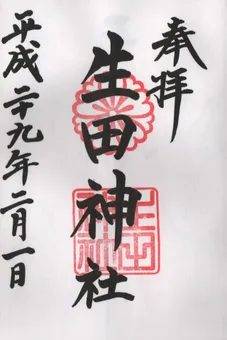 奉拝
生田神社
平成二十九年二月一日
生田神社